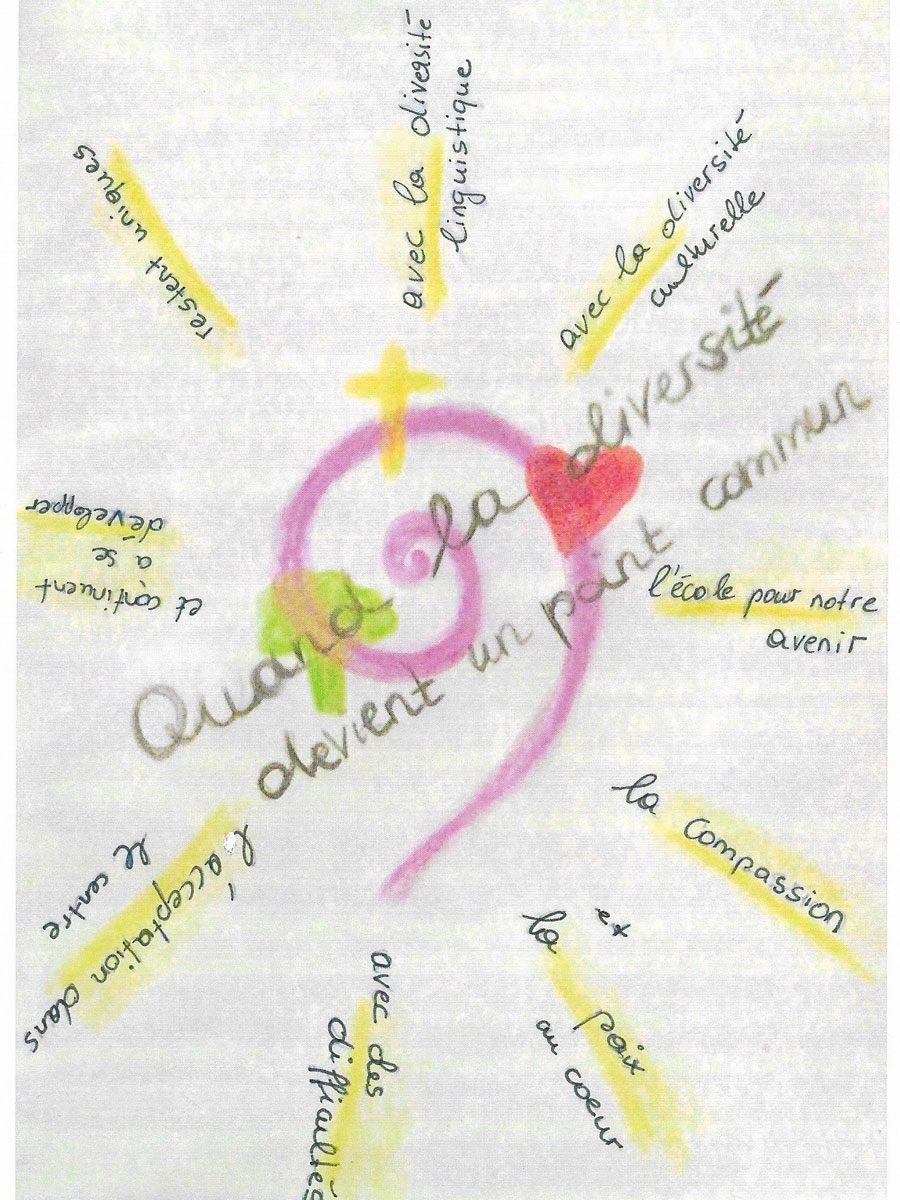 Quand la diversité
devient un point commun
avec la diversité
linguistique
avec la diversité
culturelle
l'école pour notre
avenir
la compassion
et
la paix
au coeur
avec des
difficultés
l'acceptation dans
le centre
et continuent
a se
développer
restent uniques